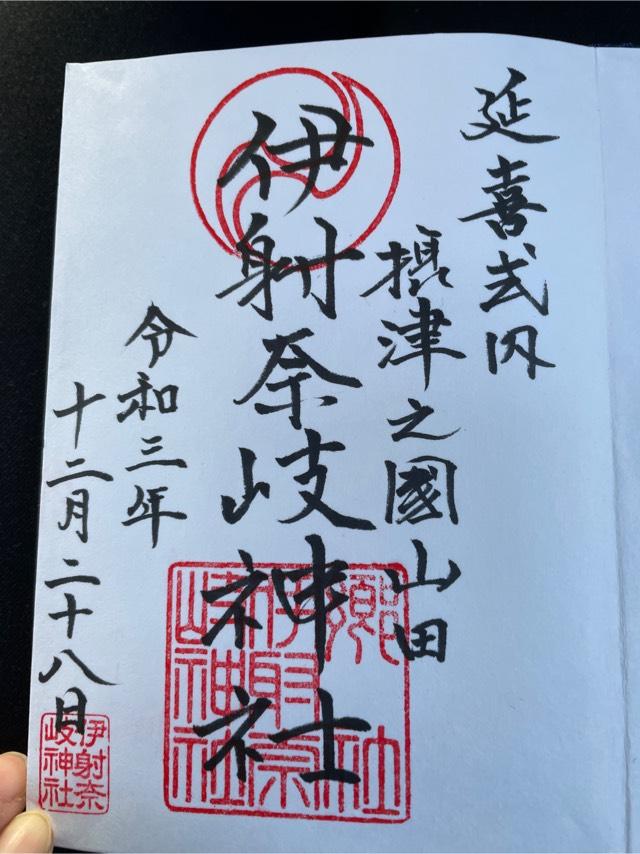 延喜式内
摂津之國山田
伊射奈岐神社
令和三年
十二月二十八日
伊射奈
岐神社